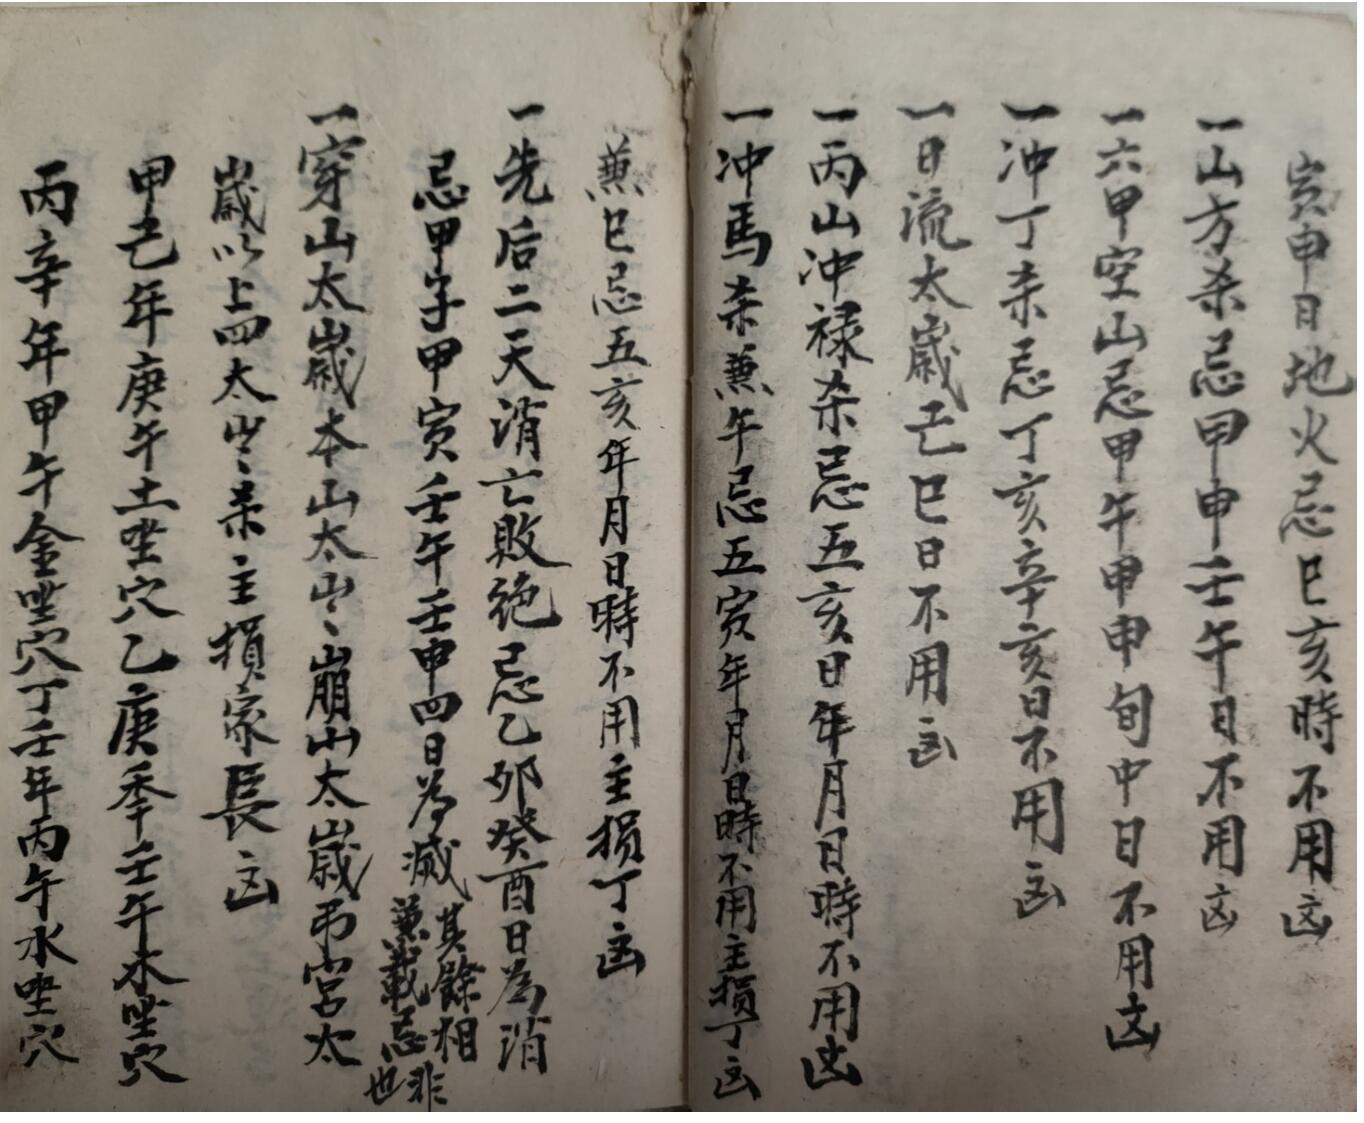 寅申日地火忌巳亥時不用凶
一山方杀忌甲申壬午日不用凶
一六甲空山忌甲午甲申旬中日不用凶
一冲丁杀忌丁亥辛亥日不用凶
一日流太歳忌巳日不用凶
一丙山冲禄杀忌五亥日年月日時不用凶
一冲馬杀兼午忌五寅年月日時不用主損丁凶
兼巳忌五亥年月日時不用主損丁凶
一先后二天消亡敗絶忌乙卯癸酉日為消
忌甲子甲寅壬午壬申四日為滅其餘相非
兼載忌也
一穿山太歳本山太歳崩山太歳弔宮太
歳以上四太歳杀主損家長凶
甲己年庚午土坐穴乙庚季壬午木坐穴
丙辛年甲午金坐穴丁壬年丙午水坐穴